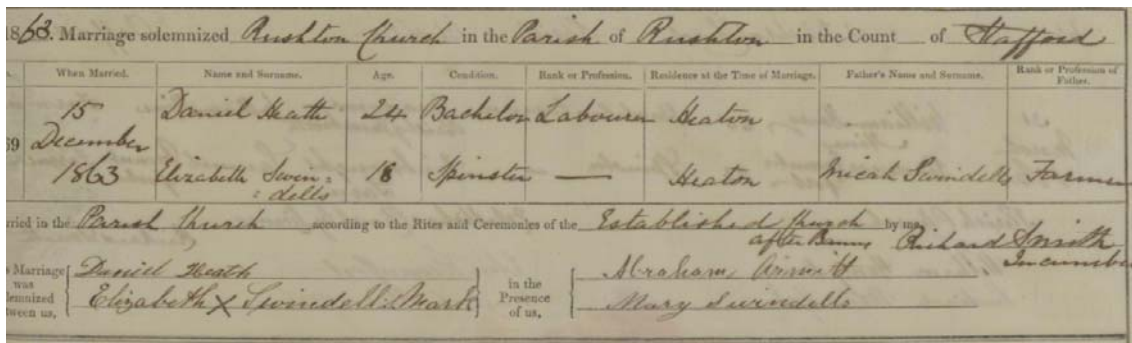 1863. Marriage solemnized Rushton Church in the Parish of Rushton in the Count of Stafford
When Married. Name and Surname. Age. Condition. Rank or Profession. Residence at the Time of Marriage. Father's Name and Surname. Rank or Profession of Father.
15 Daniel Heath 24 Bachelor Labourer Heaton
69 December
1863 Elizabeth Swin= 18 Spinster — Heaton Micah Swindells Farmer
=dells
rried in the Parish Church according to the Rites and Ceremonies of the Established Church by me,
after Banns Richard Smith
Incumbe
Marriage Daniel Heath In the Abraham
was
lemnized Elizabeth X Swindell: Mark Presence Mary Swindells
tween us, of us,